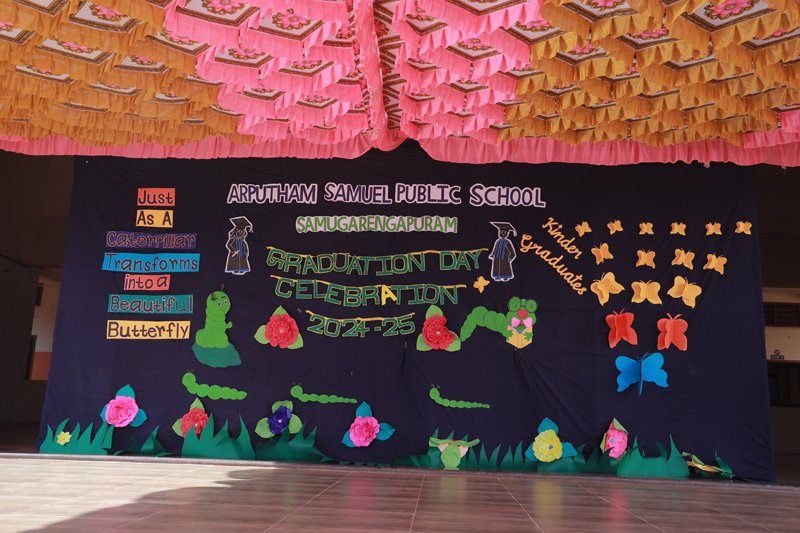 Just
As A
Catorpillar
Transforms
into a
Beautiful
Butterfly
ARPUTHAM SAMUEL PUBLIC SCHOOL
SAMUGARENGAPURAM
GRADUATION DAY
CELEBRATION
2024-25
Kinder
Graduates